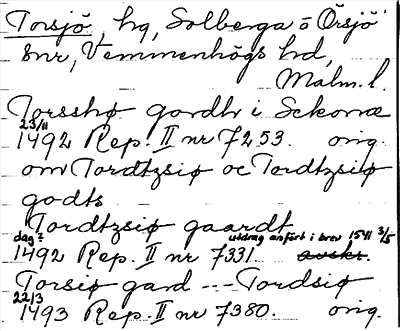 Torsjö, hg, Solberga o Örsjö
snr, Vemmenhögs hd,
Malm. l.
Torsshø gordh i Sckonæ
23/11
1492 Rep. II nr 7253. orig.
om Tordtzsiø oc Tordtzsiø
godts
Tordtzsiø gaardt
dag? utdrag anfört i brev 1541 3/5
1492 Rep. II nr 7331. avskr.
Torsiø gard --- Tordsiø
22/3
1493 Rep. II nr 7380. orig.